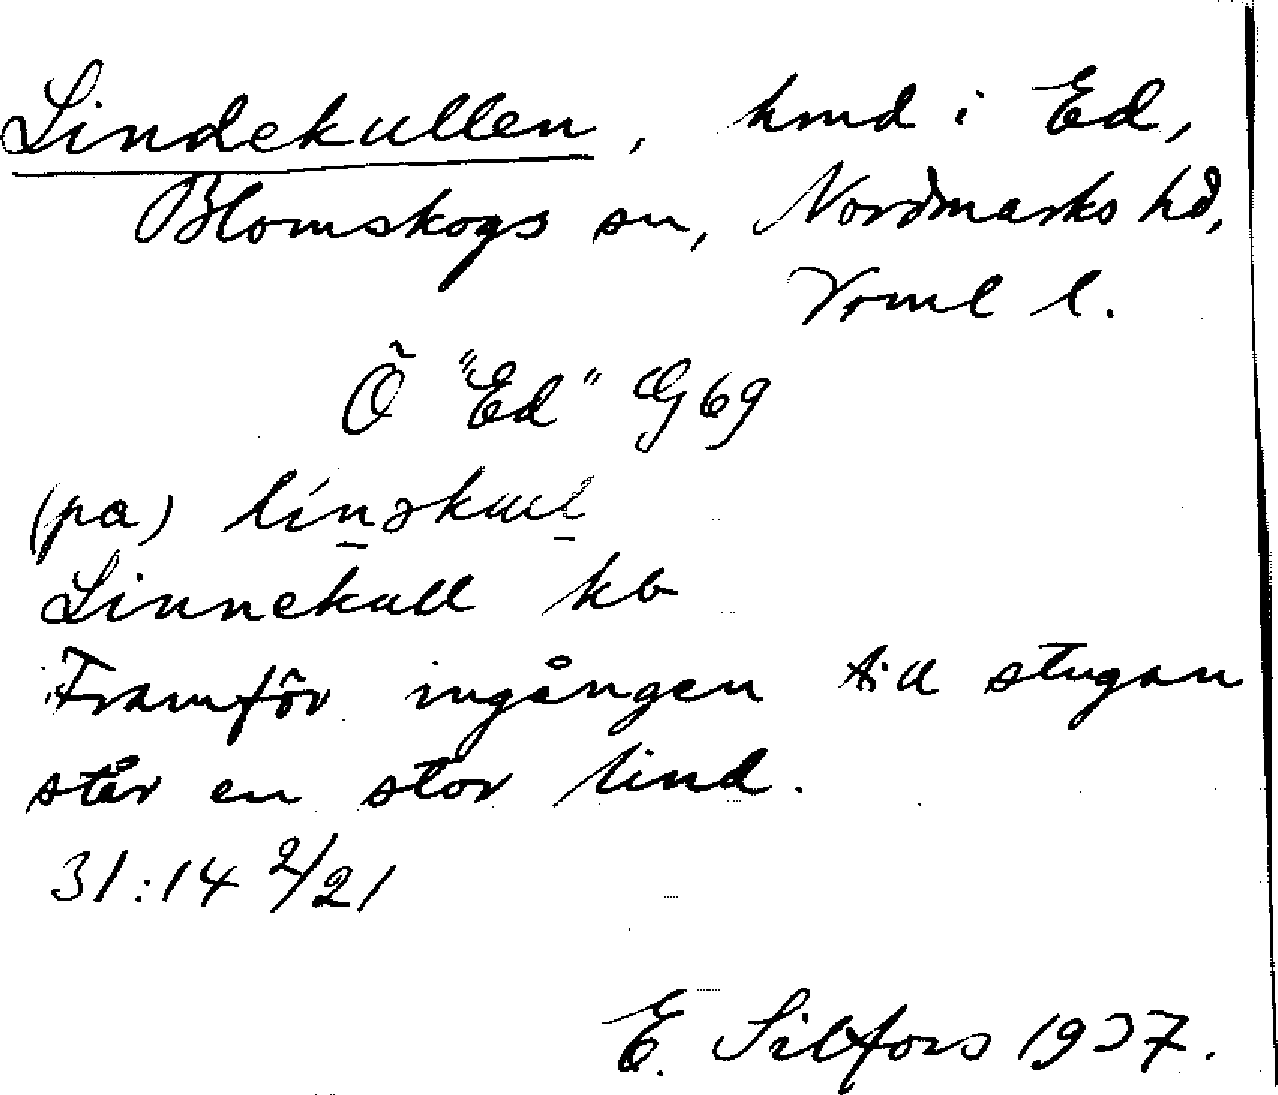 Lindekullen, hmd i Ed,
Blomskogs sn, Nordmarks hd,
Vrml l.
Ö "Ed" G69
(pa) línəkul
Linnekull kb
Framför ingången till stugan
står en stor lind.
31:14 2/21
E. Silfors 1937.